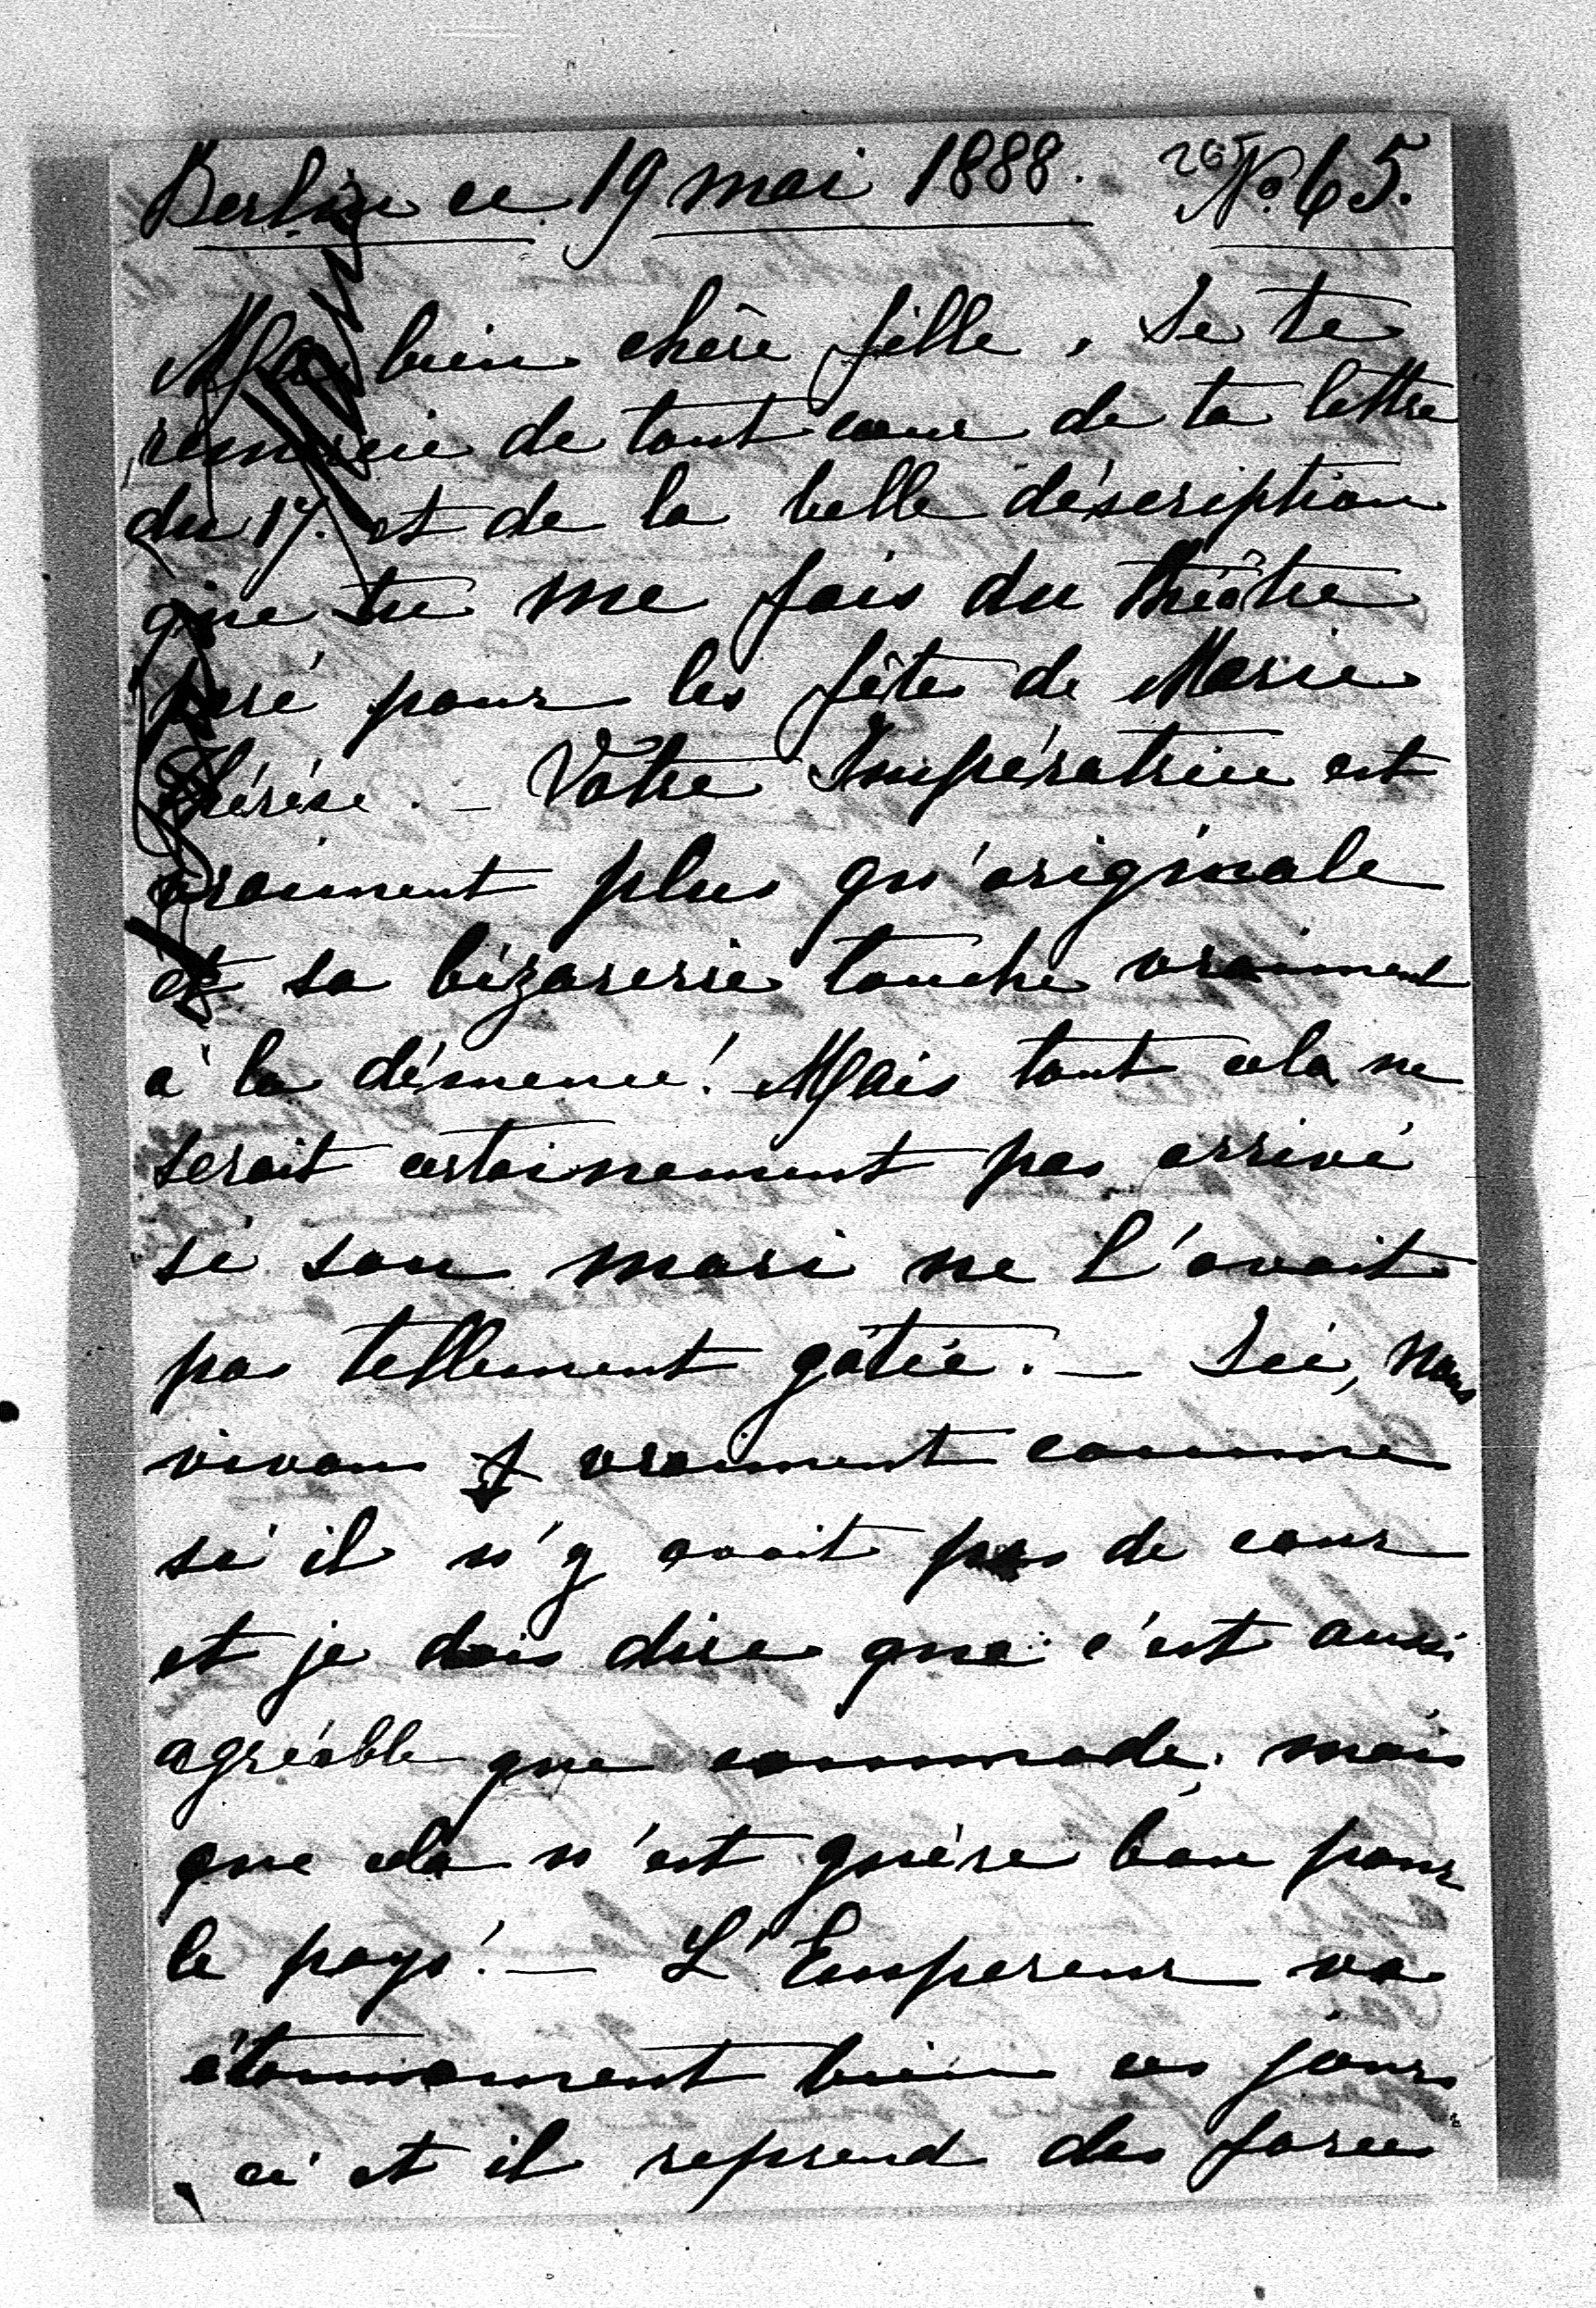 Berlin ce 19 mai 1888. 265 No. 65.
Ma bien chère fille, Je te
remercie de tout cœur de ta lettre
du 17. et de la belle déscription
que tu me fais du théâtre
paré pour les fête de Marie
Thérése. — Votre Impératrice est
vraiment plus qu'originale
et sa bizarerie touche vraiment
à la démence! Mais tout cela ne
serait certainement pas arrivé
si son mari ne l'avait
pas tellement gâtée. — Ici, nous
vivons vraiment comme
si il n'y avait pas de cour
et je dois dire que c'est aussi
agréable que commode, mais
que cela n'est guère bon pour
le pays! — L'Empereur va
étonnement bien ces jours
ci et il reprend des forces